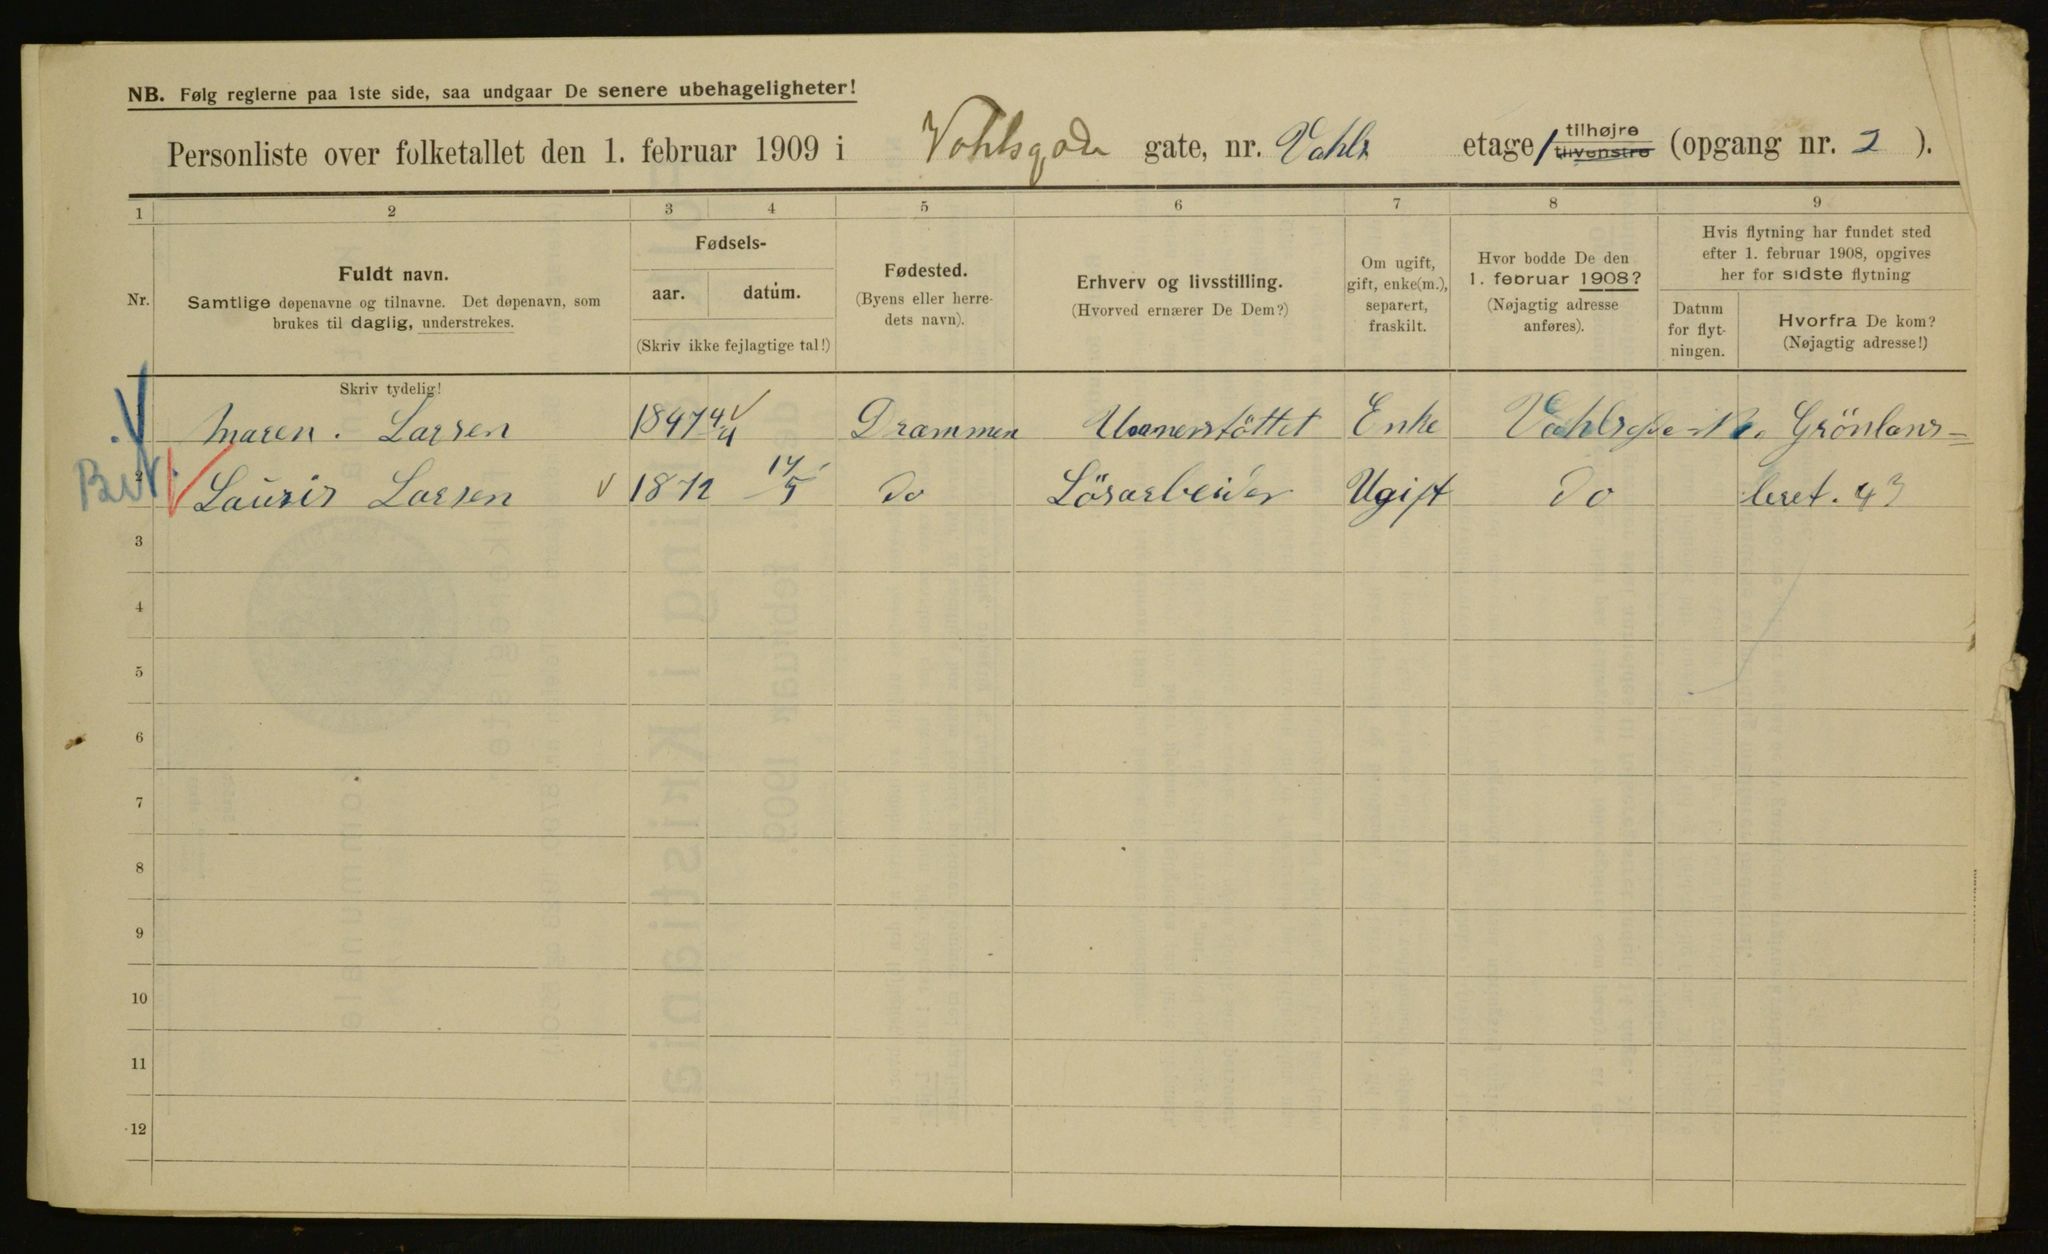 NB. Følg reglerne paa 1ste side, saa undgaar De senere ubehageligheter!
Personliste over folketallet den 1. februar 1909 i Vahlsgade gate, nr. Vahls etage 1 tilhøjre tilvenstre (opgang nr. 2 ).
1 2 3 4 5 6 7 8 9
Nr.
Fuldt navn.
Samtlige døpenavne og tilnavne. Det døpenavn, som
brukes til daglig, understrekes.
Fødsels-
aar. datum.
(Skriv ikke fejlagtige tal!)
Fødested.
(Byens eller herre-
dets navn).
Erhverv og livsstilling.
(Hvorved ernærer De Dem?)
Om ugift,
gift, enke(m.),
separert,
fraskilt.
Hvor bodde De den
1. februar 1908?
(Nøjagtig adresse
anføres).
Hvis flytning har fundet sted
efter 1. februar 1908, opgives
her for sidste flytning
Datum
for flyt-
ningen.
Hvorfra De kom?
(Nøjagtig adresse!)
Skriv tydelig!
Maren. Larsen 1847 4/4 Drammen Understöttet Enke Grönlans=
2 Lauris Larsen 1872 17/5 do Lösarbeider Ugift do leret. 43
3
4
5
6
7
8
9
10
11
12